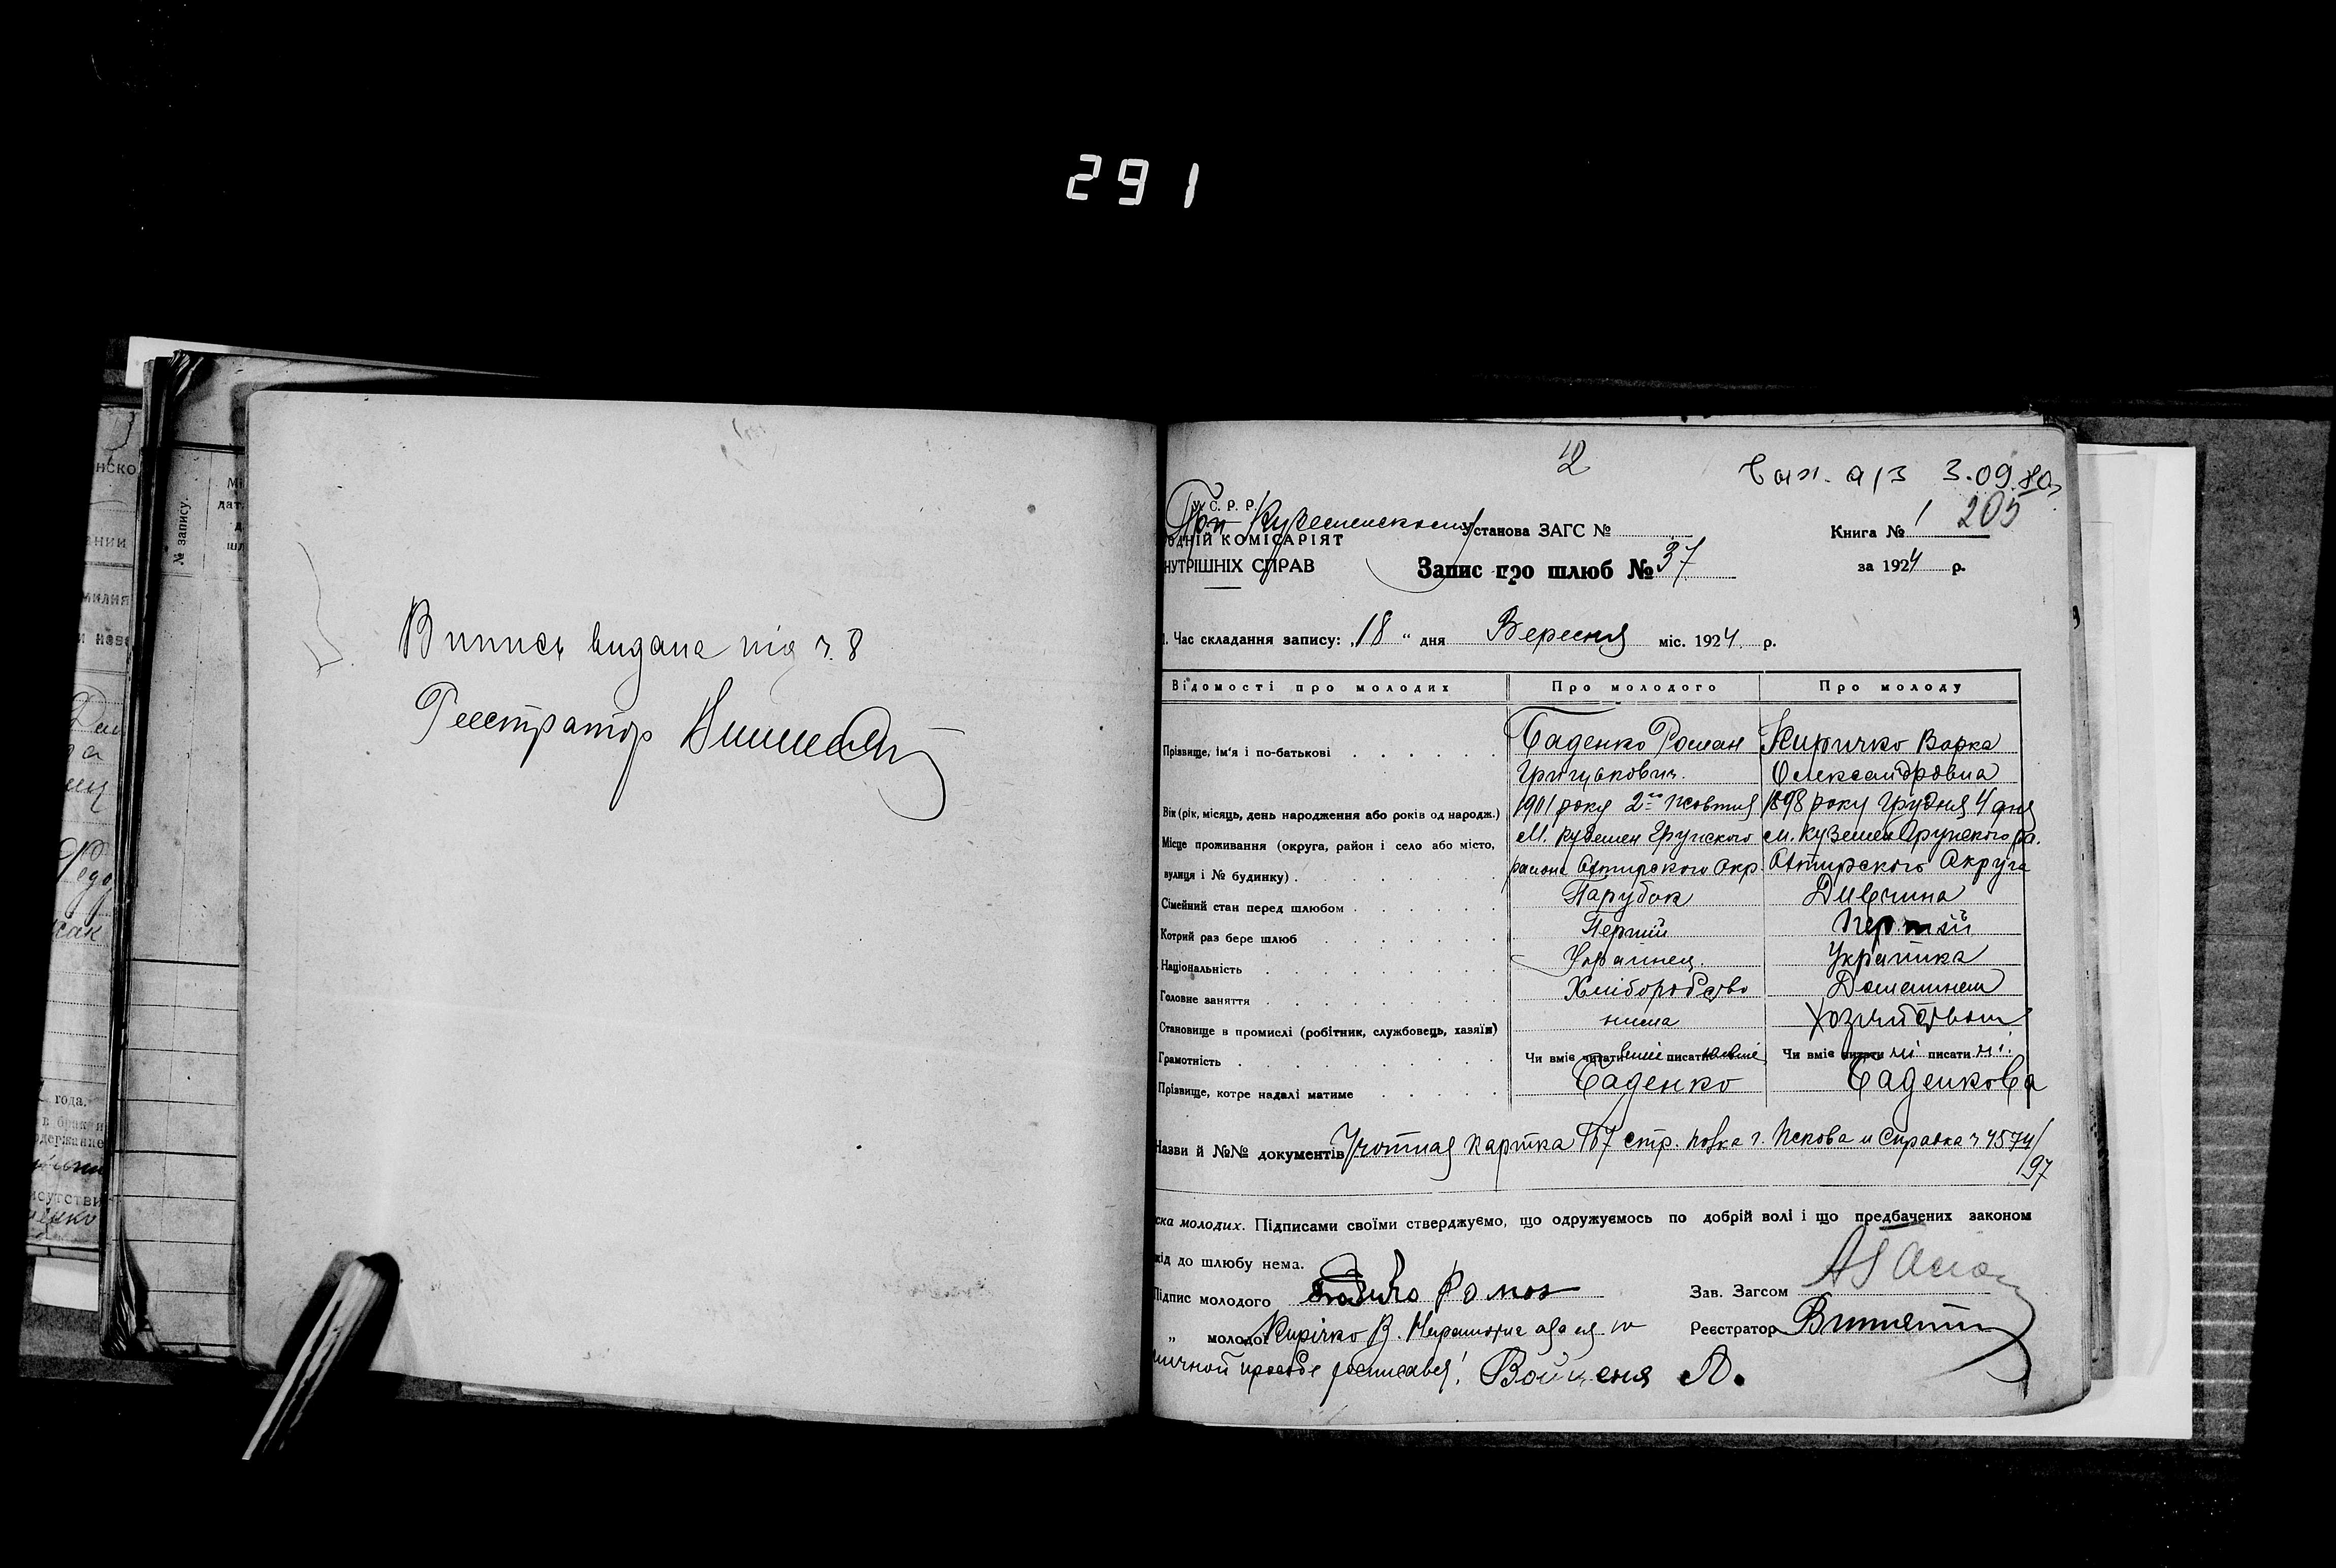 291
нско
нии
милия
и нов
года.
в браки
одержание
исутстви
енко
№ запису.
Мі
дат
д
шл
Вишись видана під ч. 8
Реєстратор
2
3.09.80
У. С. Р. Р.
При Куземенском Установа ЗАГС № Книга № 1 205
одній КОМІСАРІЯТ
НУТРІШНІХ СПРАВ Запис про шлюб № 37 за 1924 р.
1. Час складання запису: „18“ дня Вересня міс. 1924 р.
Відомості про молодих Про молодого Про молоду
Прізвище, ім'я і по-батькові Баденко Роман Киричко Варка
Григорьковіч. Олександровна
Вік (рік, місяць, день народження або років од народж.) 1901 року 2го Жовтня 1898 року Грудня 4 дня
Місце проживання (округа, район і село або місто, М. Куземен Грунского м. Куземен Грунского Ра.
вулиця і № будинку) района Охтирского Окр. Охтирского Округа
Сімейний стан перед шлюбом Парубок Дивчина
Котрий раз бере шлюб Перший Перший
Національність Українец. Українка
Головне заняття Хліборобство Домашнем
Становище в промислі (робітник, службовець, хазяїн) нима Хозяйством
Грамотність Чи вміє читати вміє писати вміє Чи вміє читати ні писати ні.
Прізвище, котре надалі матиме Баденко Баденкова
Назви й №№ документів Учотная Картка 167 стр. полка г. Пскова и Справка ч 4574/
197
ска молодих. Підписами своїми стверджуємо, що одружуємось по добрій волі і що предбачених законом
кід до шлюбу нема.
Підпис молодого Роман Зав. Загсом
„ молодої Кирічко В. Неграмотна а за ея Реєстратор
личной прозьбе росписався! Войценя Л.